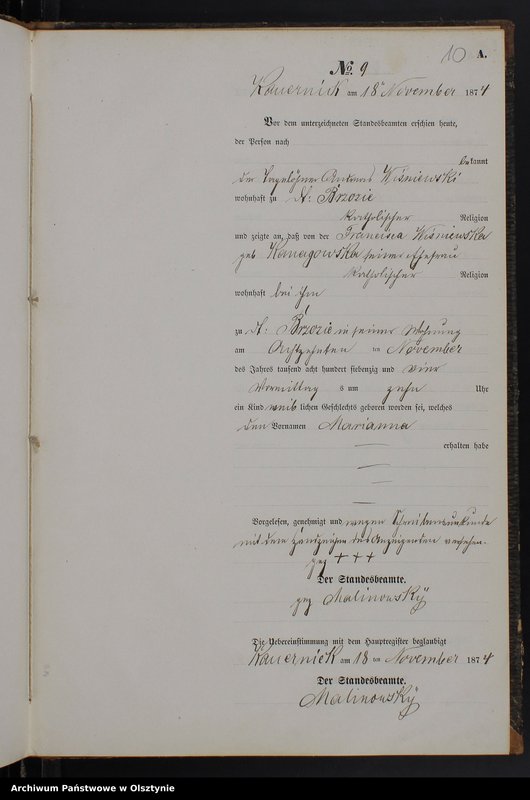 10 A.
No. 9
Kauernick am 18ten November 1874
Vor dem unterzeichneten Standesbeamten erschien heute,
der Person nach
bekannt
der Tagelöhner Andreas Wiśniewski
wohnhaft zu N: Brzozie
katholischer Religion
und zeigte an, daß von der Francisca Wiśniewska
geb Kanagowska seiner Ehefrau
katholischer Religion
wohnhaft bei ihm
zu N: Brzozie in seiner Wohnung
am Achtzehnten ten November
des Jahres tausend acht hundert siebenzig und vier
Vormittag s um zehn Uhr
ein Kind weib lichen Geschlechts geboren worden sei, welches
den Vornamen Marianna
erhalten habe
Vorgelesen, genehmigt und wegen Schreibensunkunde
mit dem Handzeichen des Anzeigenden versehen.
gez + + +
Der Standesbeamte.
gez Malinowsky
Die Uebereinstimmung mit dem Hauptregister beglaubigt
Kauernick am 18 ten November 1874
Der Standesbeamte.
Malinowsky
Archiwum Państwowe w Olsztynie